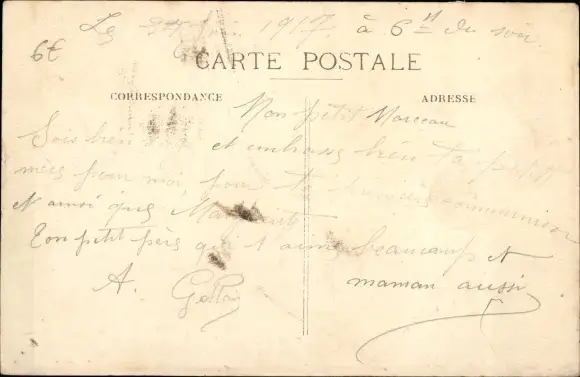 Le 1917. à 6 H du soir.
6€
CARTE POSTALE
CORRESPONDANCE
ADRESSE
Mon petit Marceau
Sois bien et embrasse bien ta petite
mère pour moi, pour ta première communion
et ainsi que
Ton petit père qui t'aime beaucoup et
maman aussi
A.